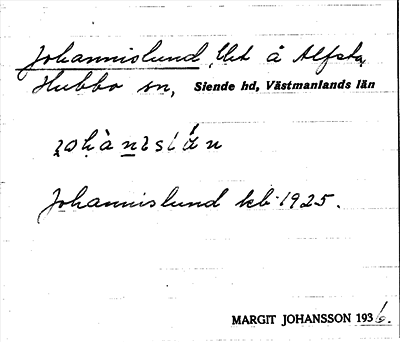 Johannislund, lht å Alfsta,
Hubbo sn, Siende hd, Västmanlands län
Johannislund kb 1925.
MARGIT JOHANSSON 1936.